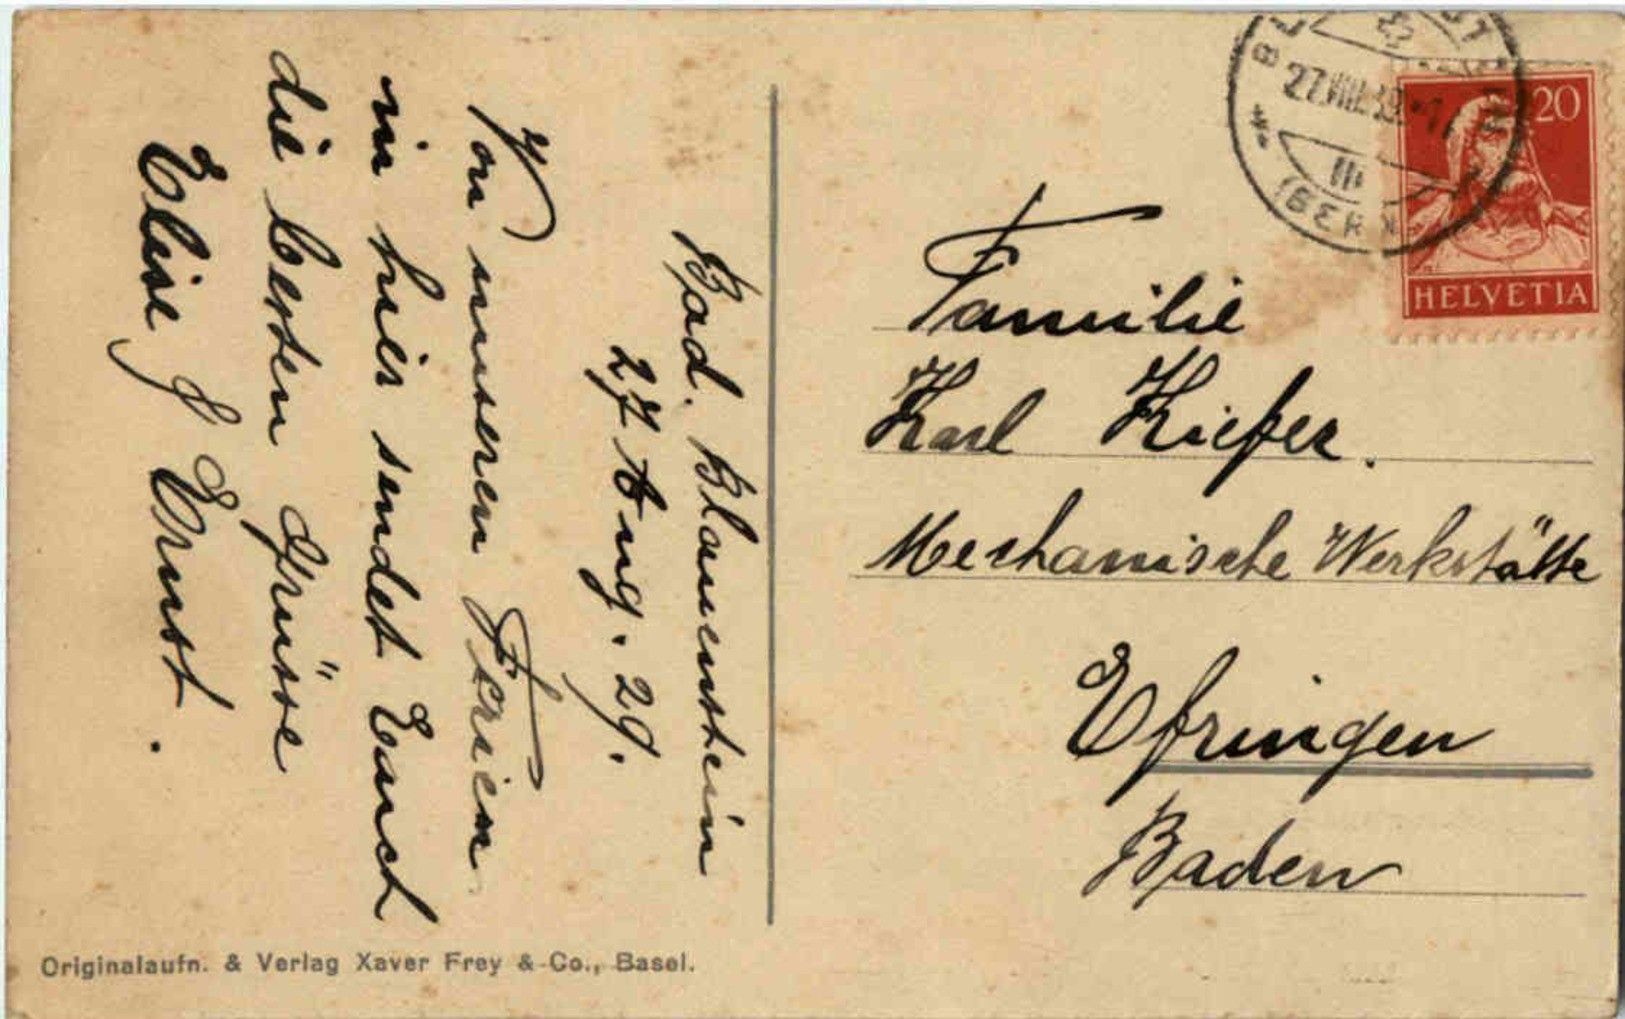 Bad. Blumenstein
27 Aug. 29.
Von unseren Ferien
in hier sendet Euch
die besten Grüsse
Elise & Ernst.
Familie
Karl Kiefer.
Mechanische Werkstätte
Efringen
Baden
20
HELVETIA
27.VIII.
III
(BERN)
Originalaufn. & Verlag Xaver Frey & Co., Basel.